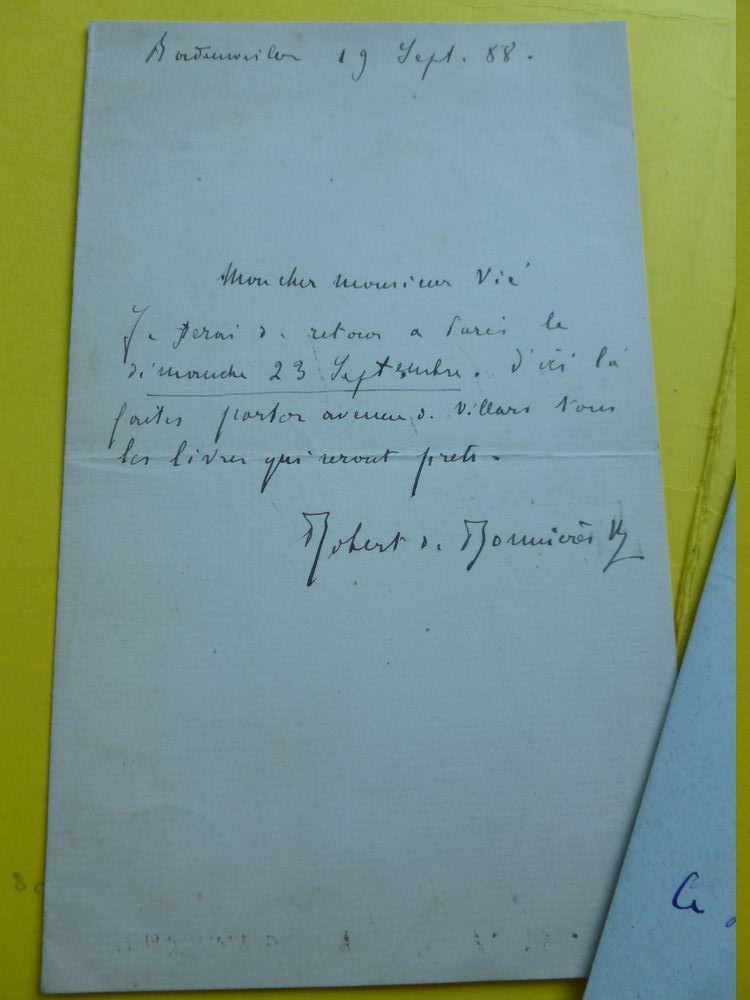 Badenweiler 19 Sept. 88.
Mon cher monsieur Vié
Je serai de retour a Paris le
dimanche 23 Septembre. d'ici là
faites porter avenue de Villars tous
les livres qui seront prets.
Robert de Bonnières
Ce